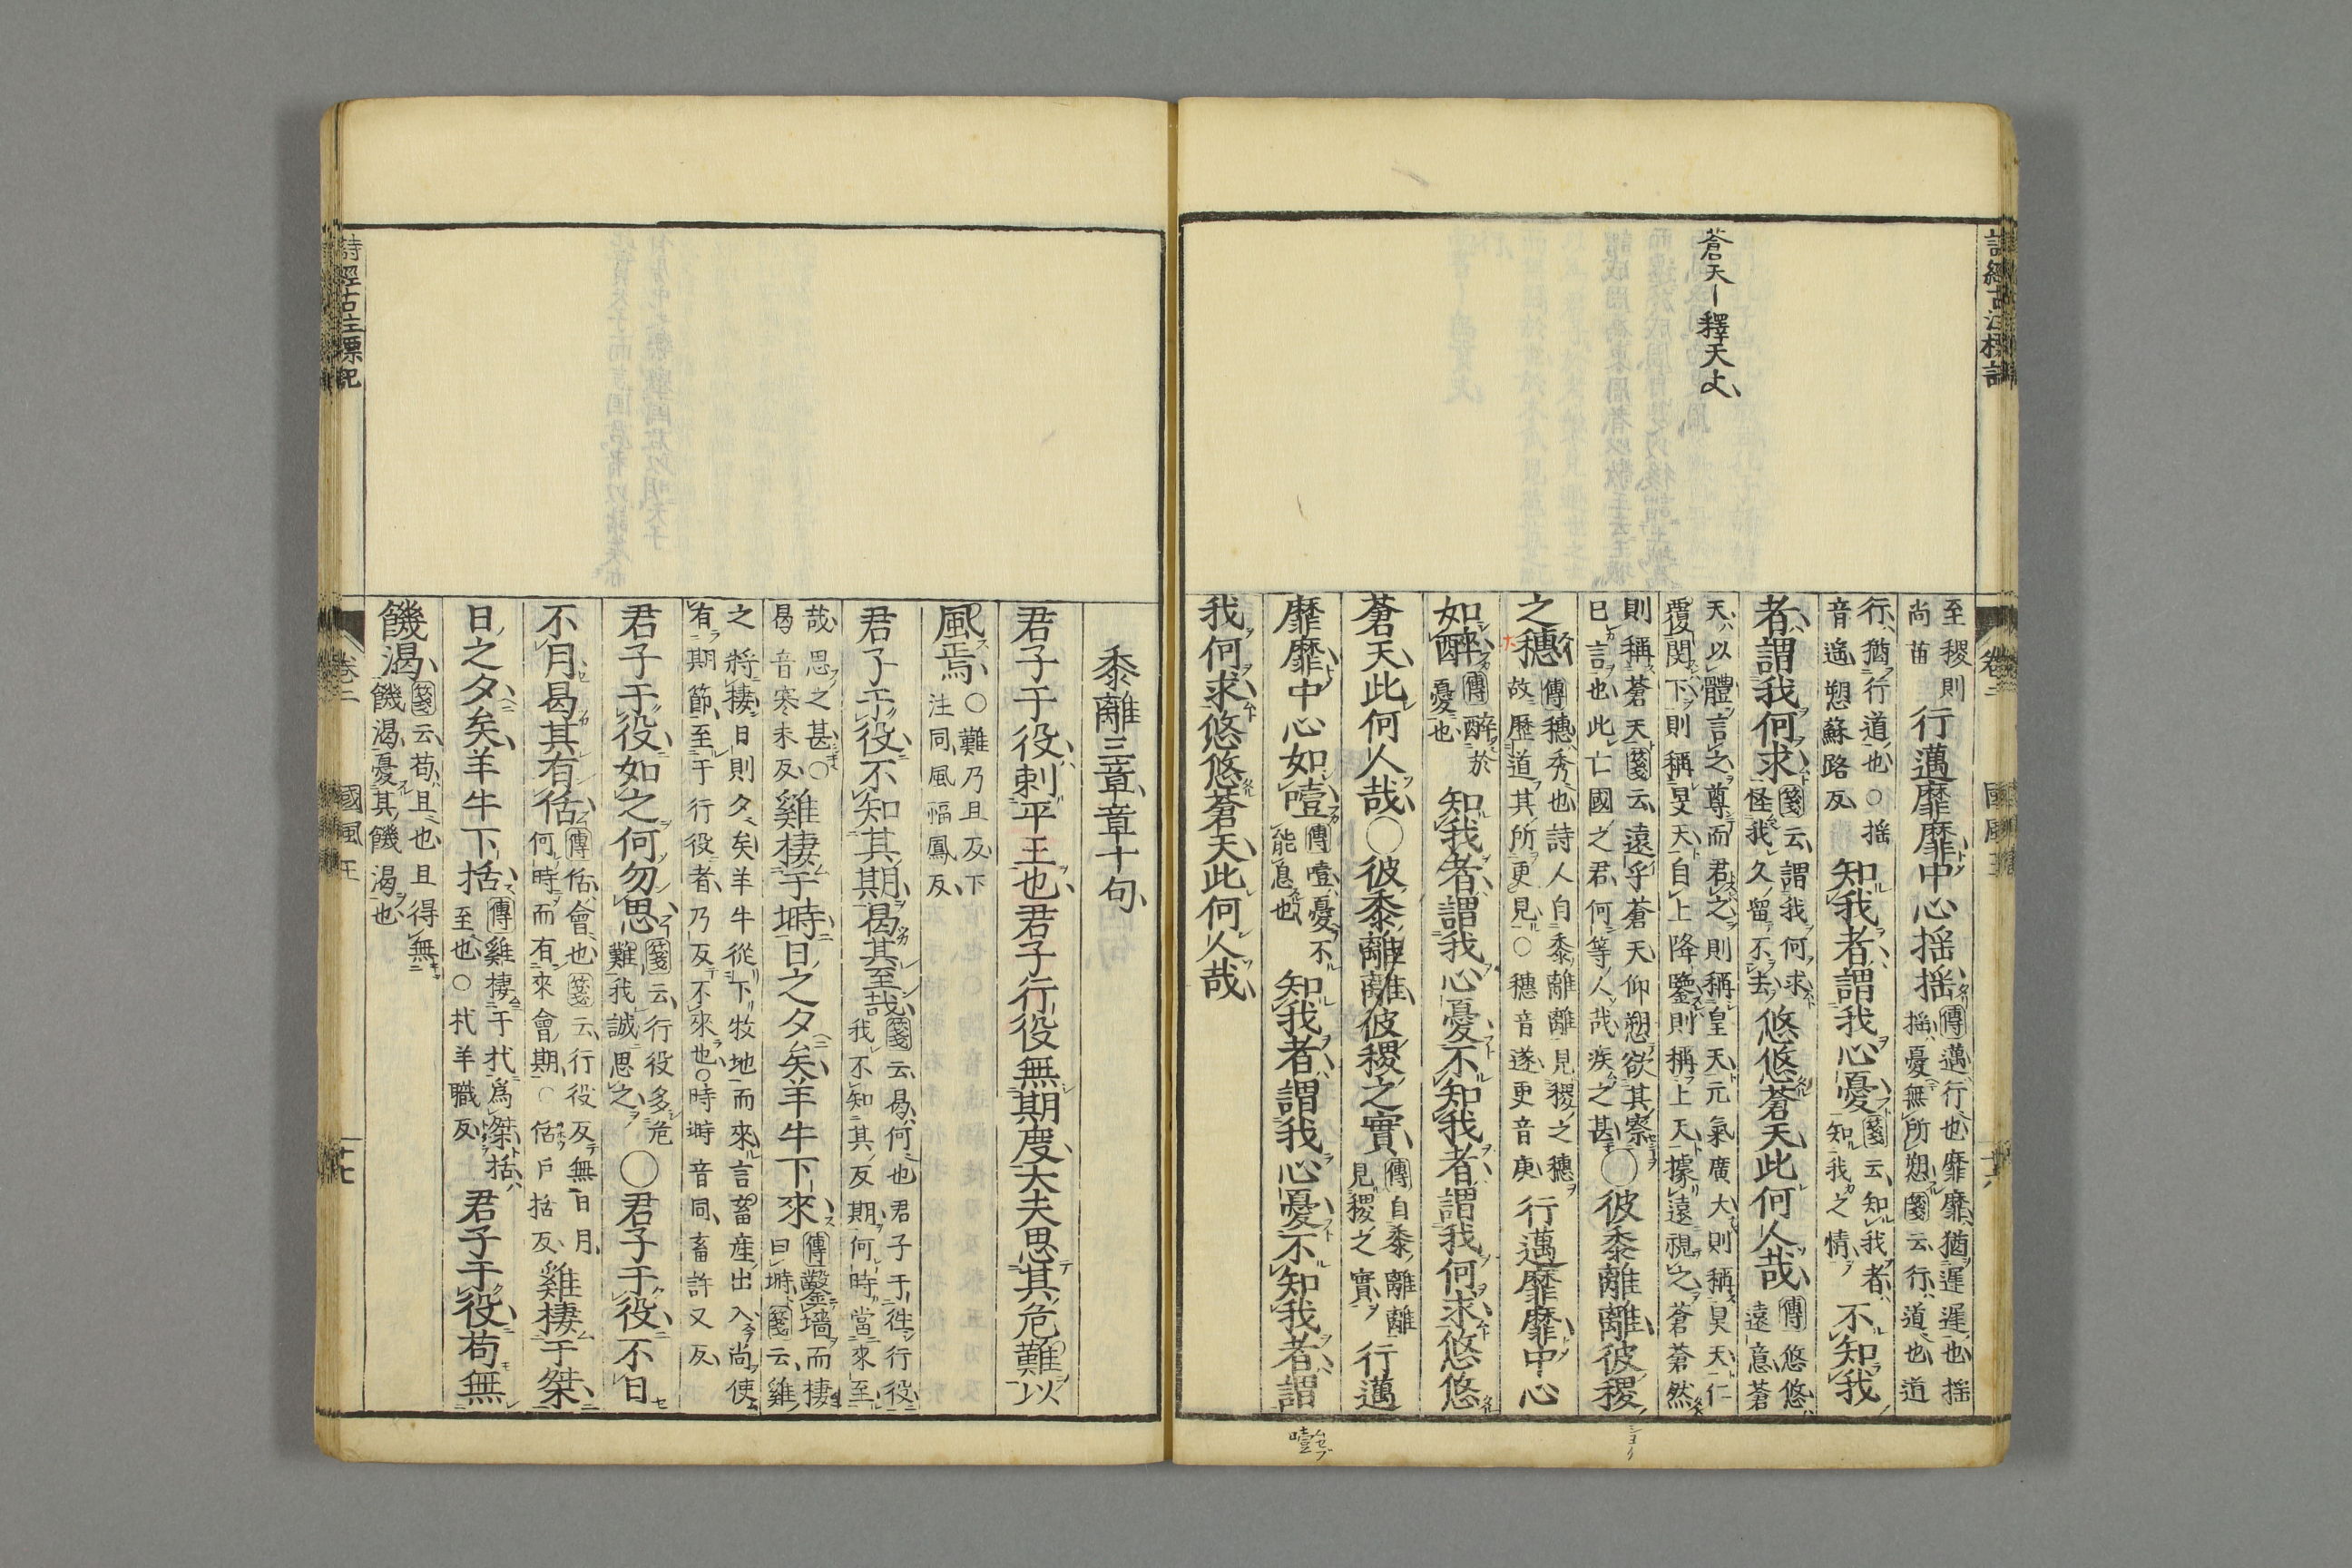 詩經古注標記
蒼天ー釋天文
至稷則
尚苗
行邁靡靡中心揺揺
傳邁行也靡靡猶遲遲也揺
揺憂無所愬箋云行道也道
行猶行道也○揺
音遙愬蘇路反
知我者謂我心憂
箋云知我者
知我之情
不知我
者謂我何求
箋云謂我何求
怪我久留不去
悠悠蒼天此何人哉
傳悠悠
遠意蒼
天以體言之尊而君之則稱皇天元氣廣大則稱昊天仁
覆閔下則稱旻天自上降鑒則稱上天據遠視之蒼蒼然
則稱蒼天箋云遠乎蒼天仰愬欲其察
已言也此亡國之君何等人哉疾之甚
○彼黍離離彼稷
之穗
傳穗秀也詩人自黍離離見稷之穗
故歷道其所更見○穗音遂更音庚
行邁靡靡中心
如醉
傳醉於
憂也
知我者謂我心憂不知我者謂我何求悠悠
蒼天此何人哉○彼黍離離彼稷之實
傳自黍離離
見稷之實
行邁
靡靡中心如噎
傳噎憂不
能息也
知我者謂我心憂不知我者謂
我何求悠悠蒼天此何人哉
噎ムセブ
卷二
國風王
黍離三章章十句
君子于役刺平王也君子行役無期度大夫思其危難以
風焉
○難乃且反下
注同風福鳳反
君子于役不知其期曷其至哉
箋云曷何也君子于往行役
我不知其反期何時當來至
哉思之甚○
曷音寒末反
雞棲于塒日之夕矣羊牛下來
傳鑿墻而棲
曰塒箋云雞
之將棲日則夕矣羊牛從下牧地而來言畜產出入尚使
有期節至于行役者乃反不來也○時塒音同畜許又反
君子于役如之何勿思
箋云行役多危
難我誠思之
○君子于役不日
不月曷其有佸
傳佸會也箋云行役反無日月
何時而有來會期○佸戶括反
雞棲于桀
日之夕矣羊牛下括
傳雞棲于杙爲桀括
至也○杙羊職反
君子于役苟無
饑渴
箋云苟且也且得無
饑渴憂其饑渴也
詩經古注標記
卷二
國風王
十七